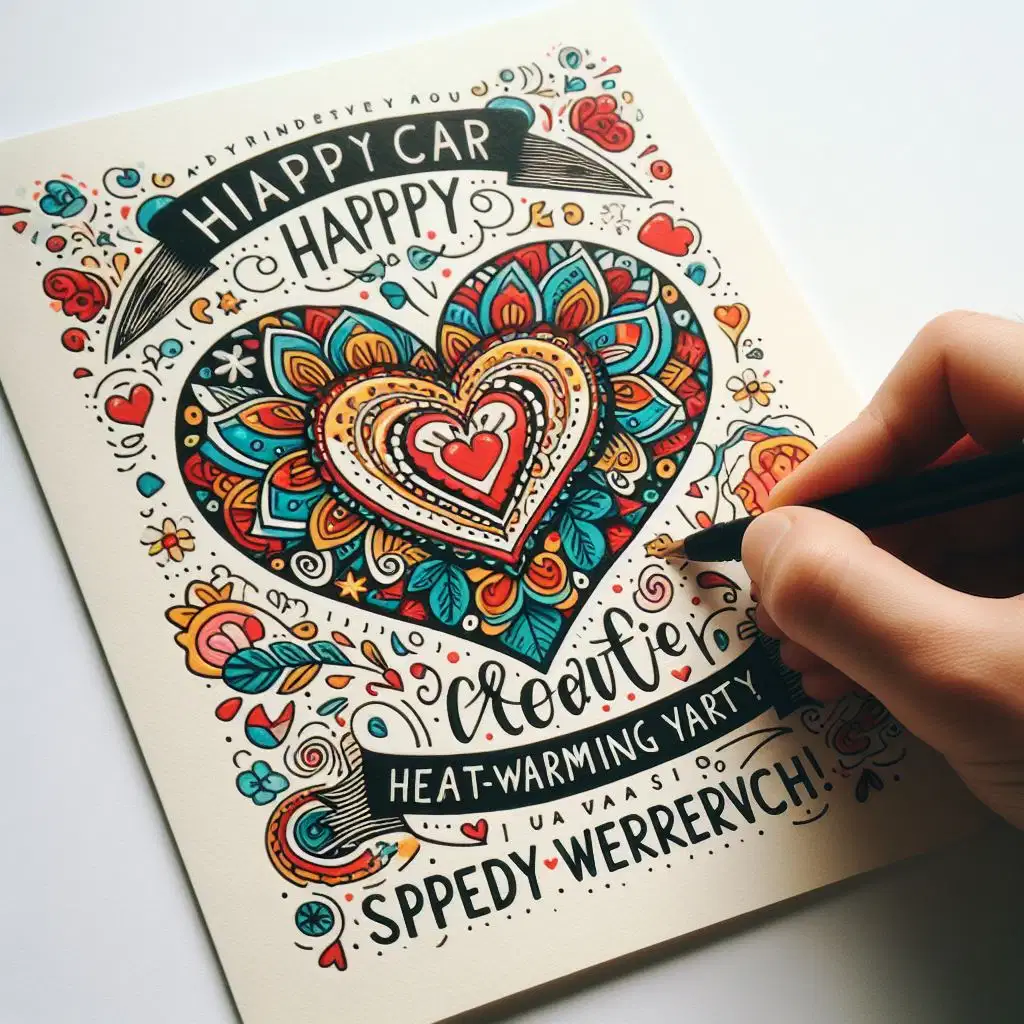 A·DYRINDETVEY AOU
HIAPPY CAR
HAPPPY
Cloautier
HEAT-WARMING YARTY.
I UA VAASIOO
SPPEDY WERRERVCH!